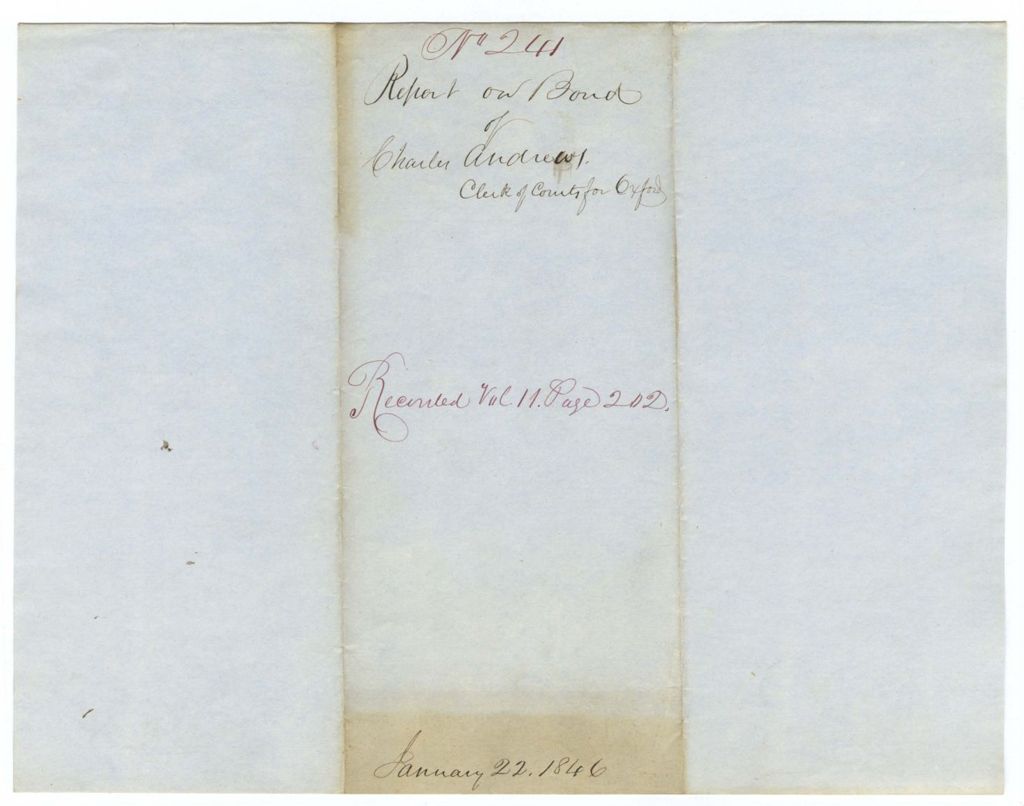 No 241
Report on Bond
of
Charles Andrews.
Clerk of Courts for Oxford
Recorded Vol. 11. Page 202.
January 22. 1846